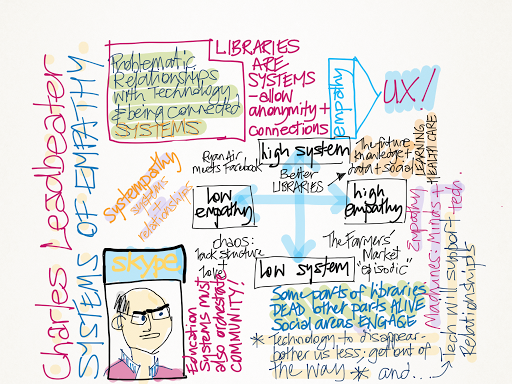 Charles Leadbeater
SYSTEMS OF EMPATHY
Problematic
Relationships
with Technology
& being connected
SYSTEMS
LIBRARIES
ARE
SYSTEMS
- allow
anonymity +
connections
empathy
UX!
RyanAir
meets Facebook
high system
The future
knowledge +
data + social
LEARNING
HEALTH CARE
Better
LIBRARIES
Systempathy
systems
relationships
low
empathy
high
empathy
chaos:
lack structure
+ love
low system
The Farmers'
Market
"episodic"
empathy
Machines: Minds +
tech.
Tech will support
Relationships
skype
Education
Systems must
also orchestrate
COMMUNITY!
Some parts of libraries
DEAD other parts ALIVE
Social areas ENGAGE
* Technology to disappear -
bother us less; get out of
the way * and...